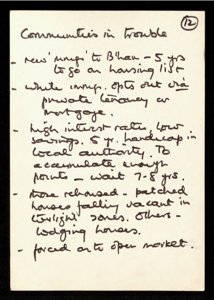 12
Communities in trouble
- new 'immigs' to B'ham - 5 yrs
to go on housing list
- white immig. opts out via
private tenancy or
mortgage.
- high interest rates, low
savings. 5 yr. handicap in
local authority. To
accumulate enough
points - wait 7-8 yrs.
- those rehoused - patched
houses falling vacant in
twilight zones. Others -
lodging houses.
- forced on to open market.